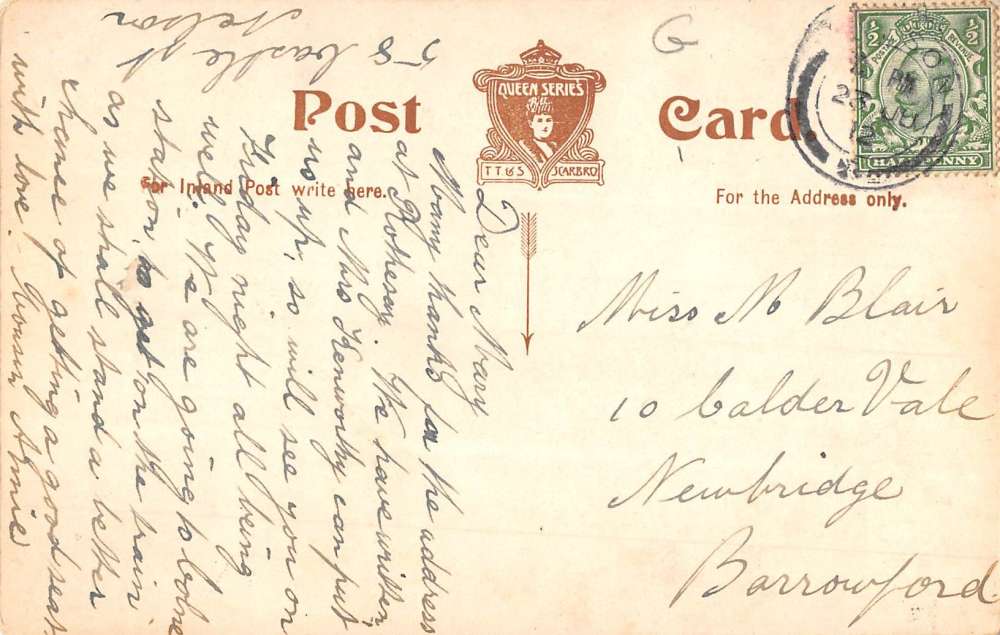 58 Castle St
Nelson
Dear Mary
Many thanks for the address
at Rothesay. We have written
and Mrs Kenworthy can put
us up, so will see you on
Friday night all being
well. We are going to Colne
station, to get on the train
as we shall stand a better
chance of getting a good seat.
with love. Cousin Annie
Post Card.
QUEEN SERIES
T T & S SCARBRO
For Inland Post write here.
For the Address only.
G
1/2 1/2
POSTAGE REVENUE
HALFPENNY
Miss M Blair
10 Calder Vale
Newbridge
Barrowford